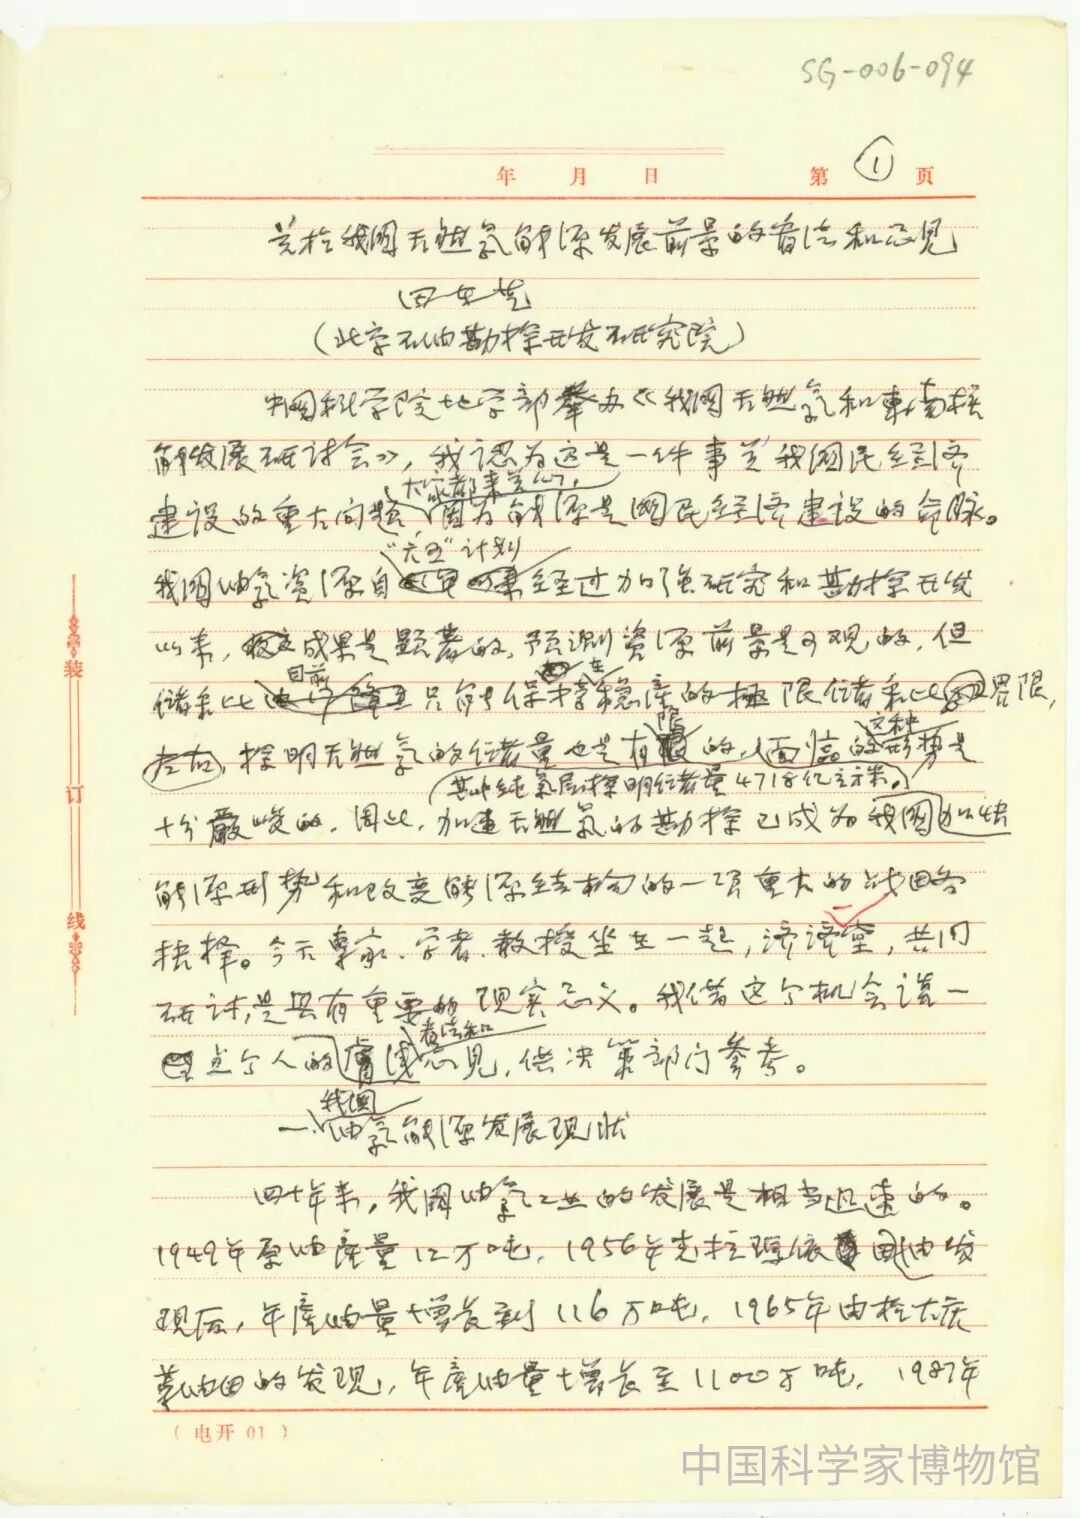 SG-006-094
年 月 日 第 1 页
关于我国天然气能源发展前景的看法和意见
田在艺
(北京石油勘探开发研究院)
中国科学院地学部举办《我国天然气和东南核
能发展研讨会》,我认为这是一件事关我国民经济
大家都来关心,
建设的重大问题 因为能源是国民经济建设的命脉。
"六五"计划
我国油气资源自 经过加强研究和勘探开发
以来,成果是显著的,预测资源前景是可观的,但
目前 在
储采比 只能保持稳产的极限储采比界限,
限 这种
左右,探明天然气的储量也是有 的,面临的形势是
其中纯气层探明储量4718亿立方米。
十分严峻的,因此,加速天然气的勘探已成为我国加快
能源形势和改变能源结构的一项重大的战略
抉择。今天专家、学者、教授坐在一起,济济一堂,共同
研讨,是具有重要的现实意义。我借这个机会谈一
看法和
点个人的肤浅意见,供决策部门参考。
我国
一、油气能源发展现状
四十年来,我国油气工业的发展是相当迅速的。
1949年原油产量12万吨,1956年克拉玛依油田发
现后,年产油量增长到116万吨,1965年由于大庆
油田的发现,年产油量增长至1100万吨,1987年
装
订
线
(电开01)
中国科学家博物馆